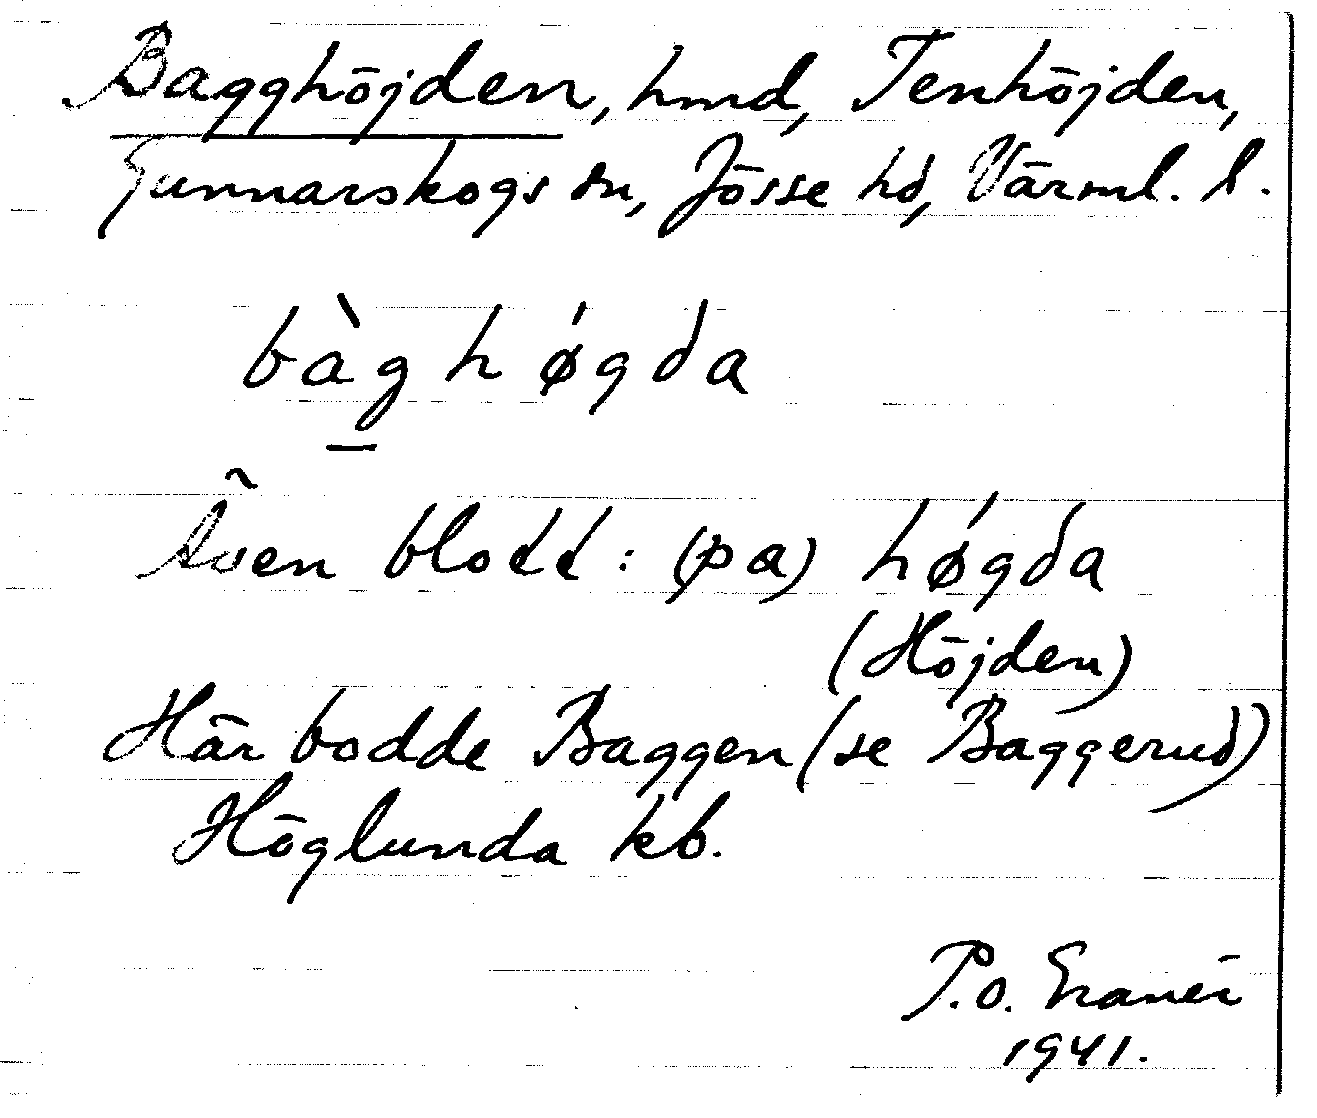 Bagghöjden, hmd, Tenhöjden,
Gunnarskogs sn, Jösse hd, Värml. l.
bàghǿgda
Även blott: (pa) hǿgda
(Höjden)
Här bodde Baggen (se Baggerud)
Höglunda kb.
P.O. Granér
1941.